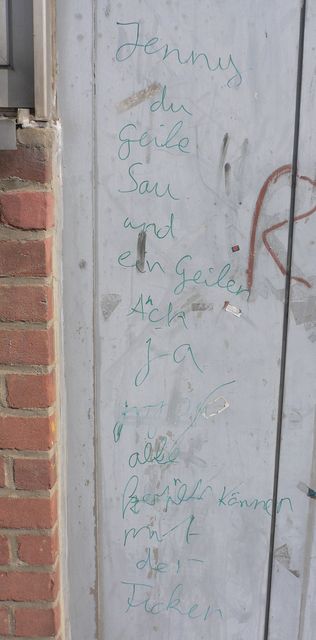 Jenny
du
geile
Sau
und
ein Geilen
Ach
ja
alle
können
mit
der
Ficken